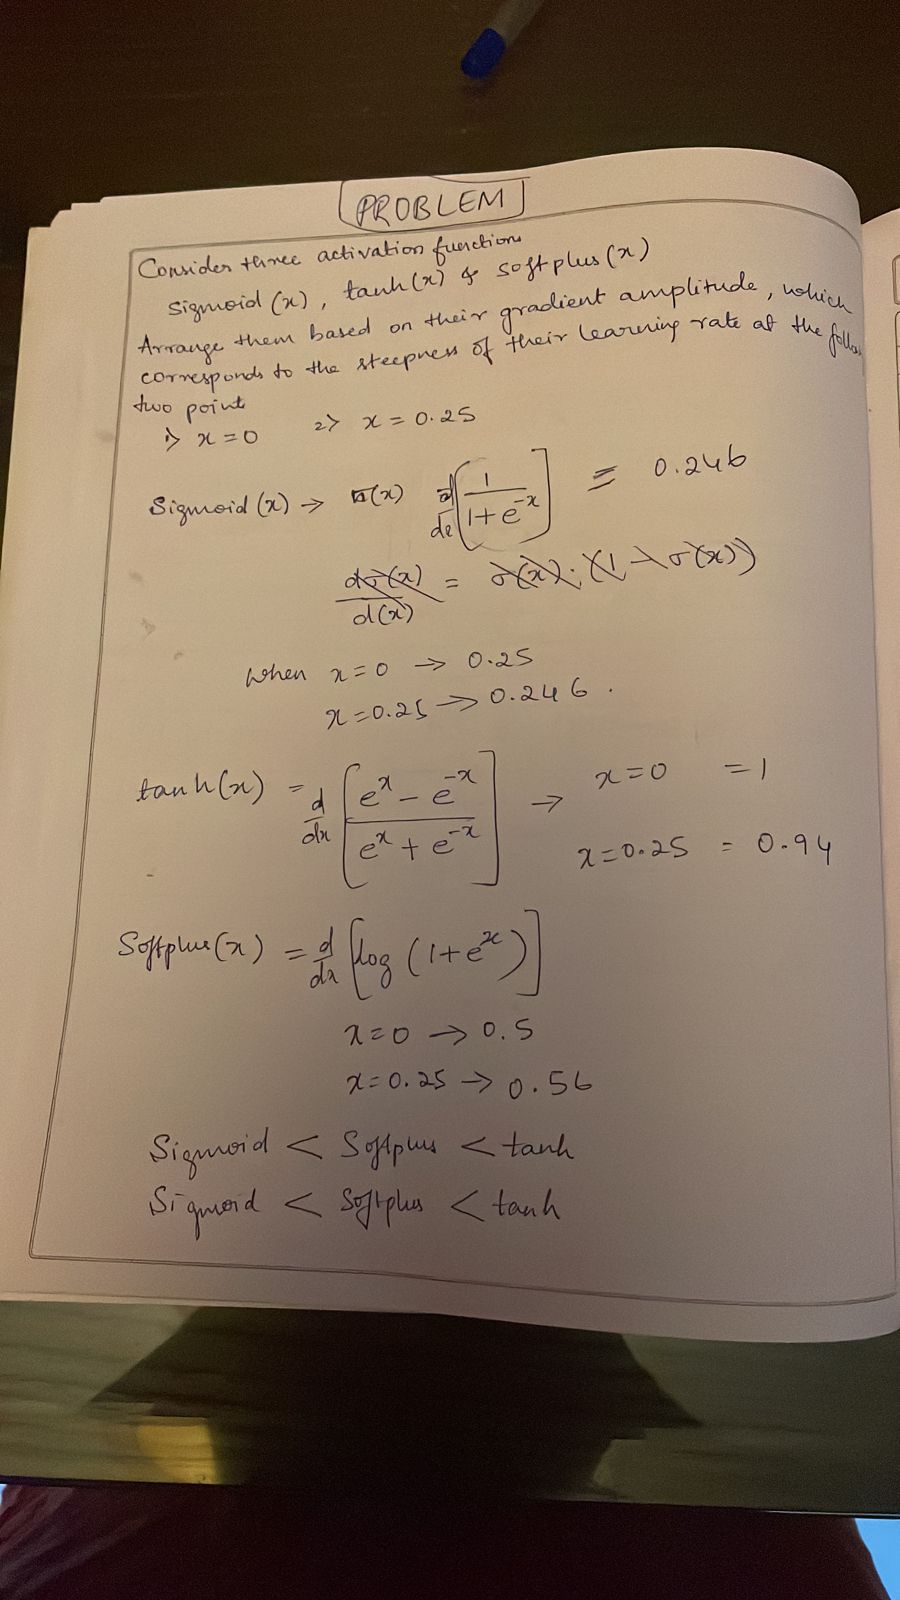 PROBLEM
Consider three activation functions
sigmoid (x), tanh(x) & softplus(x)
Arrange them based on their gradient amplitude, which
corresponds to the steepness of their learning rate at the follow
two point
1> x=0 2> x = 0.25
Sigmoid (x) → σ(x) d/dx [1/(1+e^-x)] = 0.246
dσ(x)/d(x) = σ(x).(1-σ(x))
When x=0 → 0.25
x=0.25 → 0.246.
tanh(x) = d/dx [(e^x - e^-x)/(e^x + e^-x)] → x=0 = 1
x=0.25 = 0.94
Softplus(x) = d/dx [log (1+e^x)]
x=0 → 0.5
x=0.25 → 0.56
Sigmoid < Softplus < tanh
Sigmoid < Softplus < tanh